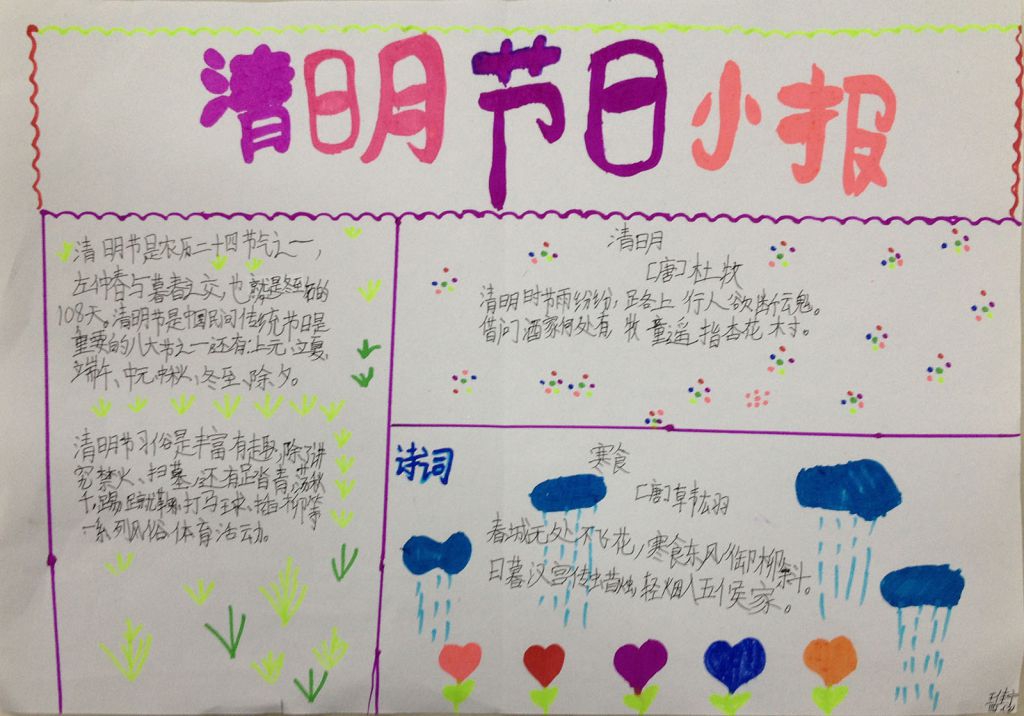 清明节日小报
清明节是农历二十四节气之一,
在仲春与暮春之交,也就是冬至后的
108天。清明节是中国民间传统节日是
重要的八大节之一还有:上元、立夏、
端午、中元、中秋、冬至、除夕。
清明节习俗是丰富有趣,除了讲
究禁火、扫墓,还有足踏青、荡秋
千,踢足就鞠、打马球、插柳等
一系列风俗体育活动。
清明
[唐]杜牧
清明时节雨纷纷,路上行人欲断云鬼。
借问酒家何处有,牧童遥指杏花村。
诗词
寒食
[唐]韩翃
春城无处不飞花,寒食东风御柳斜。
日暮汉宫传蜡烛,轻烟入五侯家。